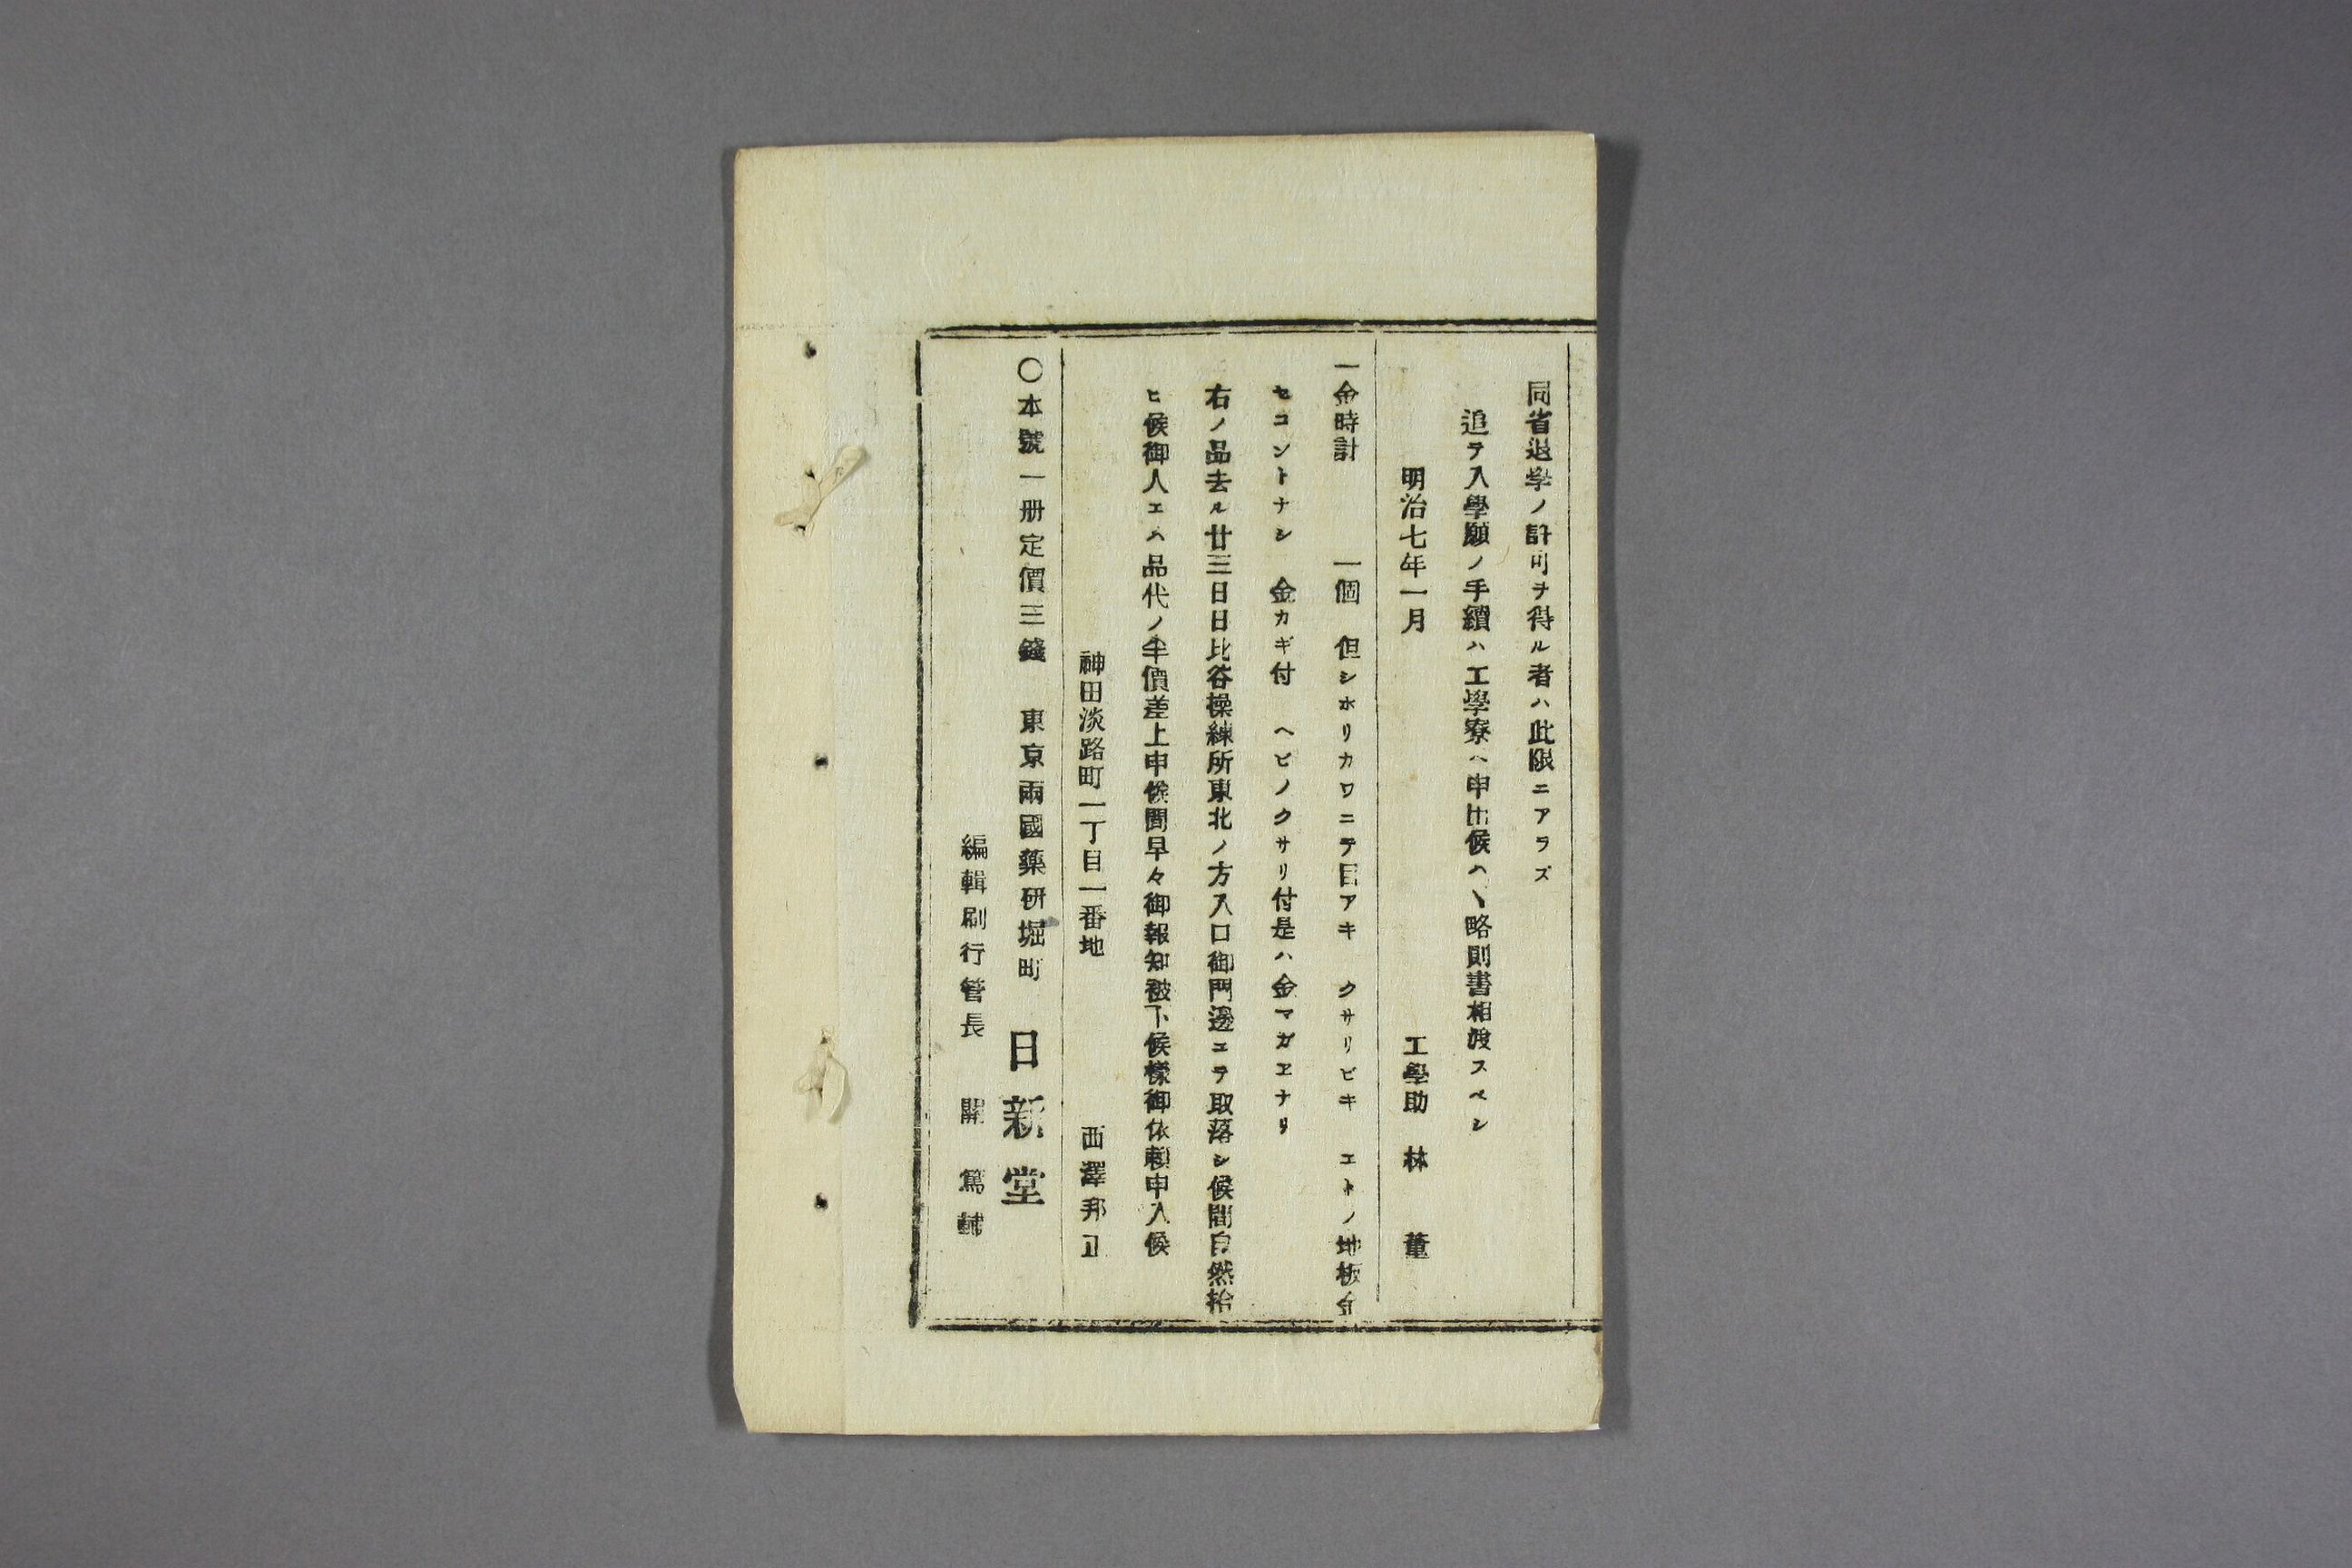 同省退学ノ許可ヲ得ル者ハ此限ニアラズ
追テ入學願ノ手續ハ工學寮ヘ申出候ハヽ略則書相渡スベシ
明治七年一月　工學助　林　董
一金時計　一個　但シホリカワニテ目アキ　クサリビキ　エトノ地板金
セコントナシ　金カギ付　ヘビノクサリ付是ハ金マガヱナリ
右ノ品去ル廿三日日比谷操練所東北ノ方入口御門邊ニテ取落シ候間自然拾
ヒ候御人エハ品代ノ半價差上申候間早々御報知被下候樣御依頼申入候
神田淡路町一丁目一番地　西澤邦正
〇本號一册定價三錢　東京兩國藥研堀町　日新堂
編輯刷行管長　關　篤輔